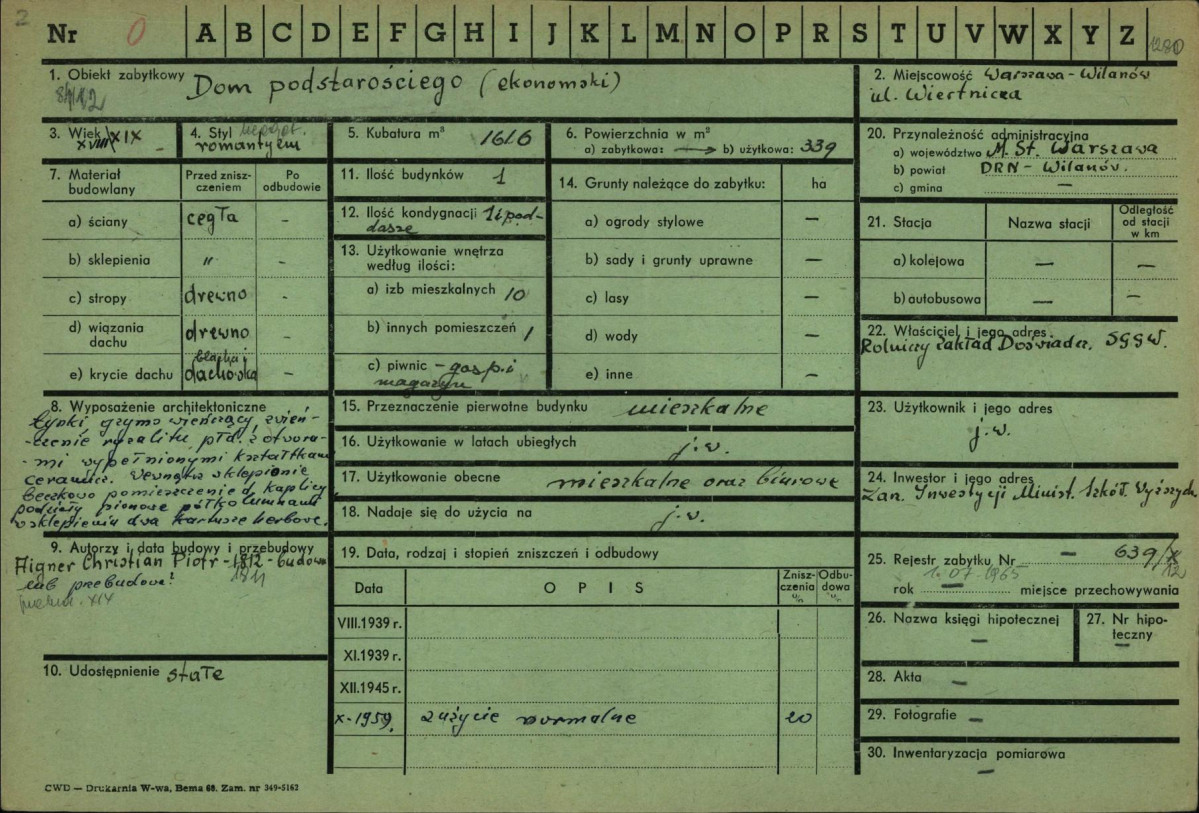 2
Nr 0 A B C D E F G H I J K L M N O P R S T U V W X Y Z 1280
1. Obiekt zabytkowy Dom podstarościego (ekonomski)
2. Miejscowość Warszawa - Wilanów
ul. Wiertnicza
3. Wiek XVIII/XIX
4. Styl
romantyzm
5. Kubatura m³ 1616
6. Powierzchnia w m²
a) zabytkowa: → b) użytkowa: 339
20. Przynależność administracyjna
a) województwo M. St. Warszawa
b) powiat DRN - Wilanów.
c) gmina —
7. Materiał budowlany
Przed zniszczeniem
Po odbudowie
a) ściany cegła -
b) sklepienia " -
c) stropy drewno -
d) wiązania dachu drewno -
e) krycie dachu blacha i dachówka -
11. Ilość budynków 1
12. Ilość kondygnacji 1 i poddasze
13. Użytkowanie wnętrza według ilości:
a) izb mieszkalnych 10
b) innych pomieszczeń 1
c) piwnic - gosp. i
magazyn
14. Grunty należące do zabytku: ha
a) ogrody stylowe —
b) sady i grunty uprawne —
c) lasy —
d) wody —
e) inne —
21. Stacja
Nazwa stacji
Odległość od stacji w km
a) kolejowa — —
b) autobusowa — —
22. Właściciel i jego adres
Rolniczy Zakład Doświadcz. SGGW.
8. Wyposażenie architektoniczne
gzyms wieńczący, zwień-
czenie ryzalitu płd. z otwora-
mi wypełnionymi kształtkami
ceramicz. Wewnątrz sklepione
beczkowo pomieszczenie d. kaplicy
podziały pionowe półkolumnami
w sklepieniu dwa kartusze herbowe.
15. Przeznaczenie pierwotne budynku mieszkalne
16. Użytkowanie w latach ubiegłych j.w.
17. Użytkowanie obecne mieszkalne oraz biurowe
18. Nadaje się do użycia na j.w.
23. Użytkownik i jego adres
j.w.
24. Inwestor i jego adres
Zarz. Inwestycji Minist. Szkół Wyższych
9. Autorzy i data budowy i przebudowy
Aigner Christian Piotr - 1812 - budowa
1811
lub przebudowa?
XIX
10. Udostępnienie stałe
19. Data, rodzaj i stopień zniszczeń i odbudowy
Data
O P I S
Zniszczenia %
Odbudowa %
VIII.1939 r.
XI.1939 r.
XII.1945 r.
X-1959. zużycie normalne 20
25. Rejestr zabytku Nr — 639/x
12
1.07.1965
rok — miejsce przechowywania
26. Nazwa księgi hipotecznej
—
27. Nr hipoteczny
—
28. Akta —
29. Fotografie —
30. Inwentaryzacja pomiarowa
—
CWD — Drukarnia W-wa, Bema 68. Zam. nr 349-5162